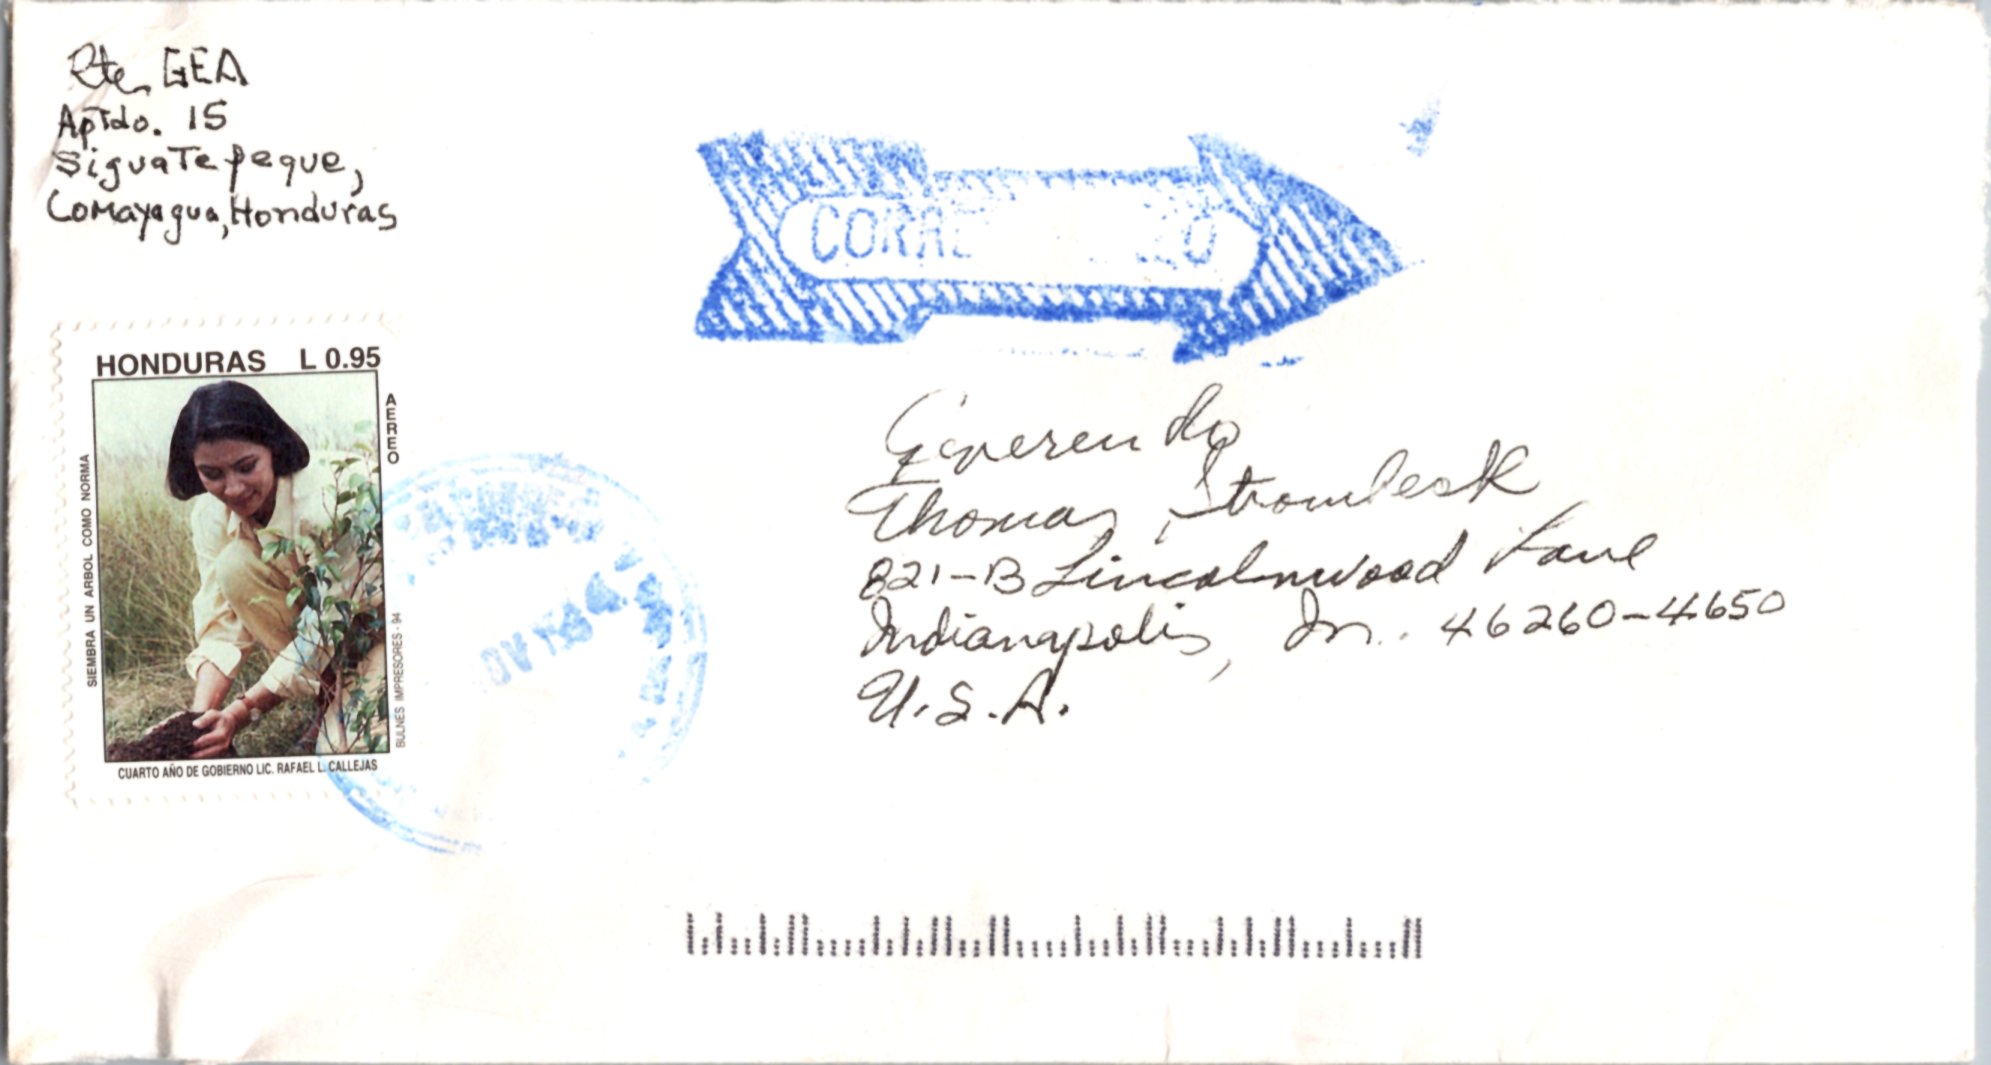 Rte. GEA
Aptdo. 15
Siguatepeque,
Comayagua, Honduras
HONDURAS L 0.95
AEREO
SIEMBRA UN ARBOL COMO NORMA
BULNES IMPRESORES - 94
CUARTO AÑO DE GOBIERNO LIC. RAFAEL L. CALLEJAS
Thomas Strombeck
821-B Lincolnwood Lane
Indianapolis, In. 46260-4650
U.S.A.